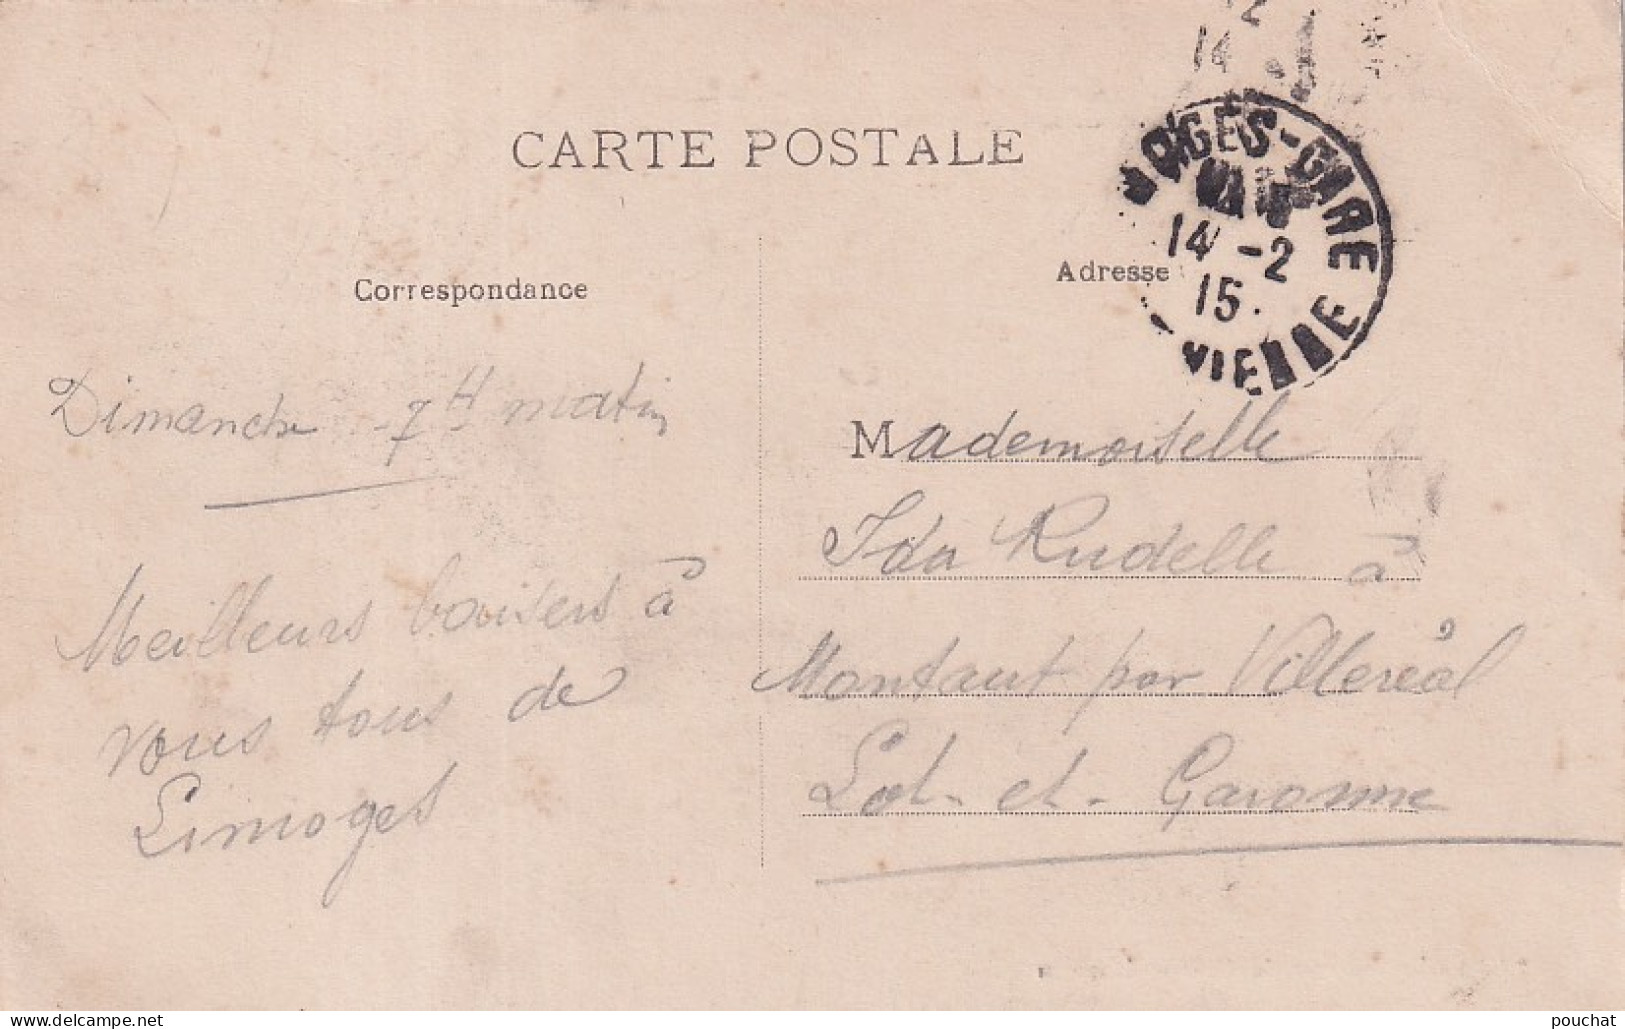 2
14
CARTE POSTALE
MOGES-GARE
14 -2
15.
VIENNE
Correspondance
Adresse
Dimanche 7H matin
Mademoiselle
Ida Rudelle à
Meilleurs baisers à
vous tous de
Limoges
Montaut par Villeréal
Lot-et-Garonne
pouchat